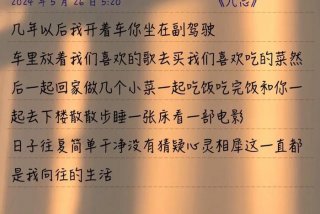 2024 年 5 月 26 日 5:20
几年以后我开着车你坐在副驾驶
车里放着我们喜欢的歌去买我们喜欢吃的菜然
后一起回家做几个小菜一起吃饭吃完饭和你一
起去下楼散散步睡一张床看一部电影
日子往复简单干净没有猜疑心灵相犀这一直都
是我向往的生活